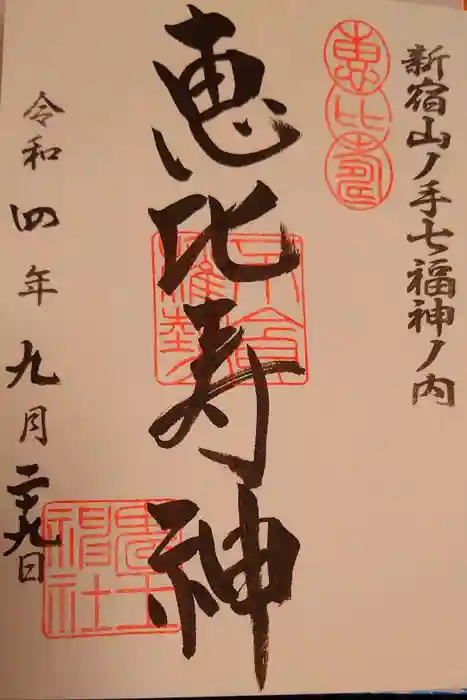 新宿山ノ手七福神ノ内
惠比壽
恵比寿神
令和四年九月二十九日
鬼王
神社